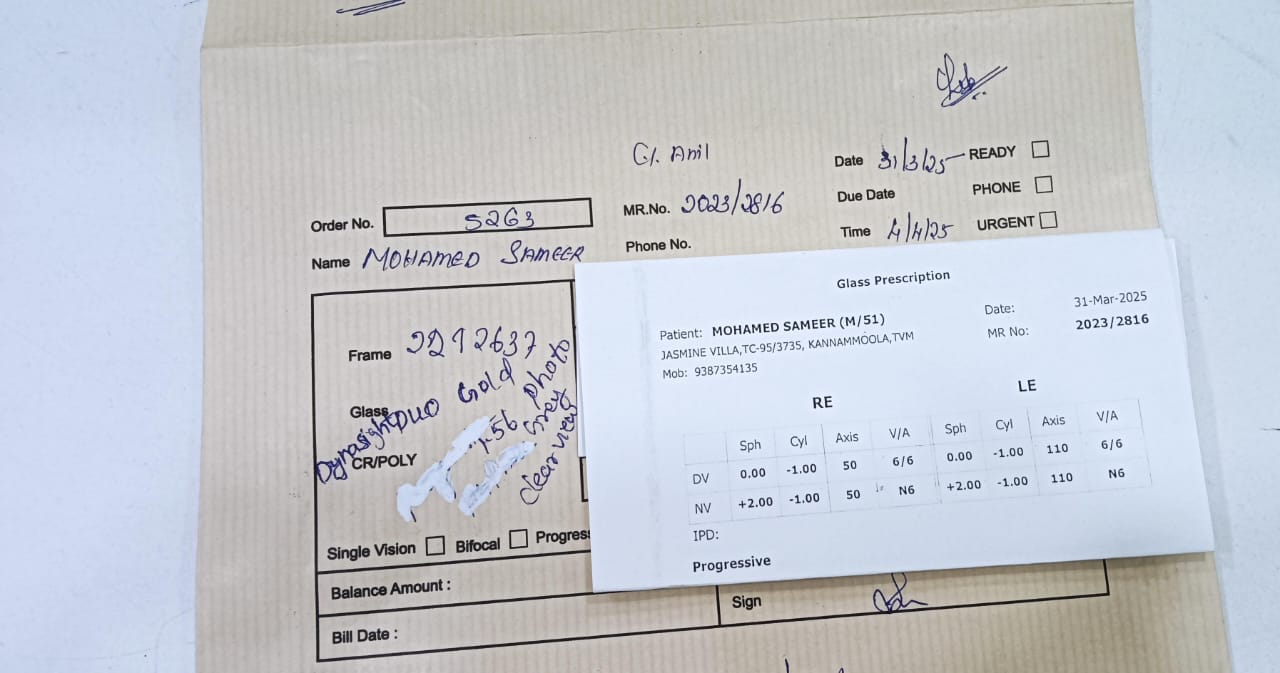 G/. Anil
Date 31/3/25 READY
Due Date PHONE
Time 4/4/25 URGENT
Order No. 5263
MR.No. 2023/2816
Name MOHAMED SAMEER
Phone No.
Frame 2212637
Glass Dynasight DUO Gold
1.56 photo
grey
clear view
CR/POLY
Single Vision Bifocal Progres
Balance Amount :
Bill Date :
Sign
Glass Prescription
Patient: MOHAMED SAMEER (M/51)
JASMINE VILLA,TC-95/3735, KANNAMMOOLA,TVM
Mob: 9387354135
Date: 31-Mar-2025
MR No: 2023/2816
RE LE
Sph Cyl Axis V/A Sph Cyl Axis V/A
DV 0.00 -1.00 50 6/6 0.00 -1.00 110 6/6
NV +2.00 -1.00 50 N6 +2.00 -1.00 110 N6
IPD:
Progressive